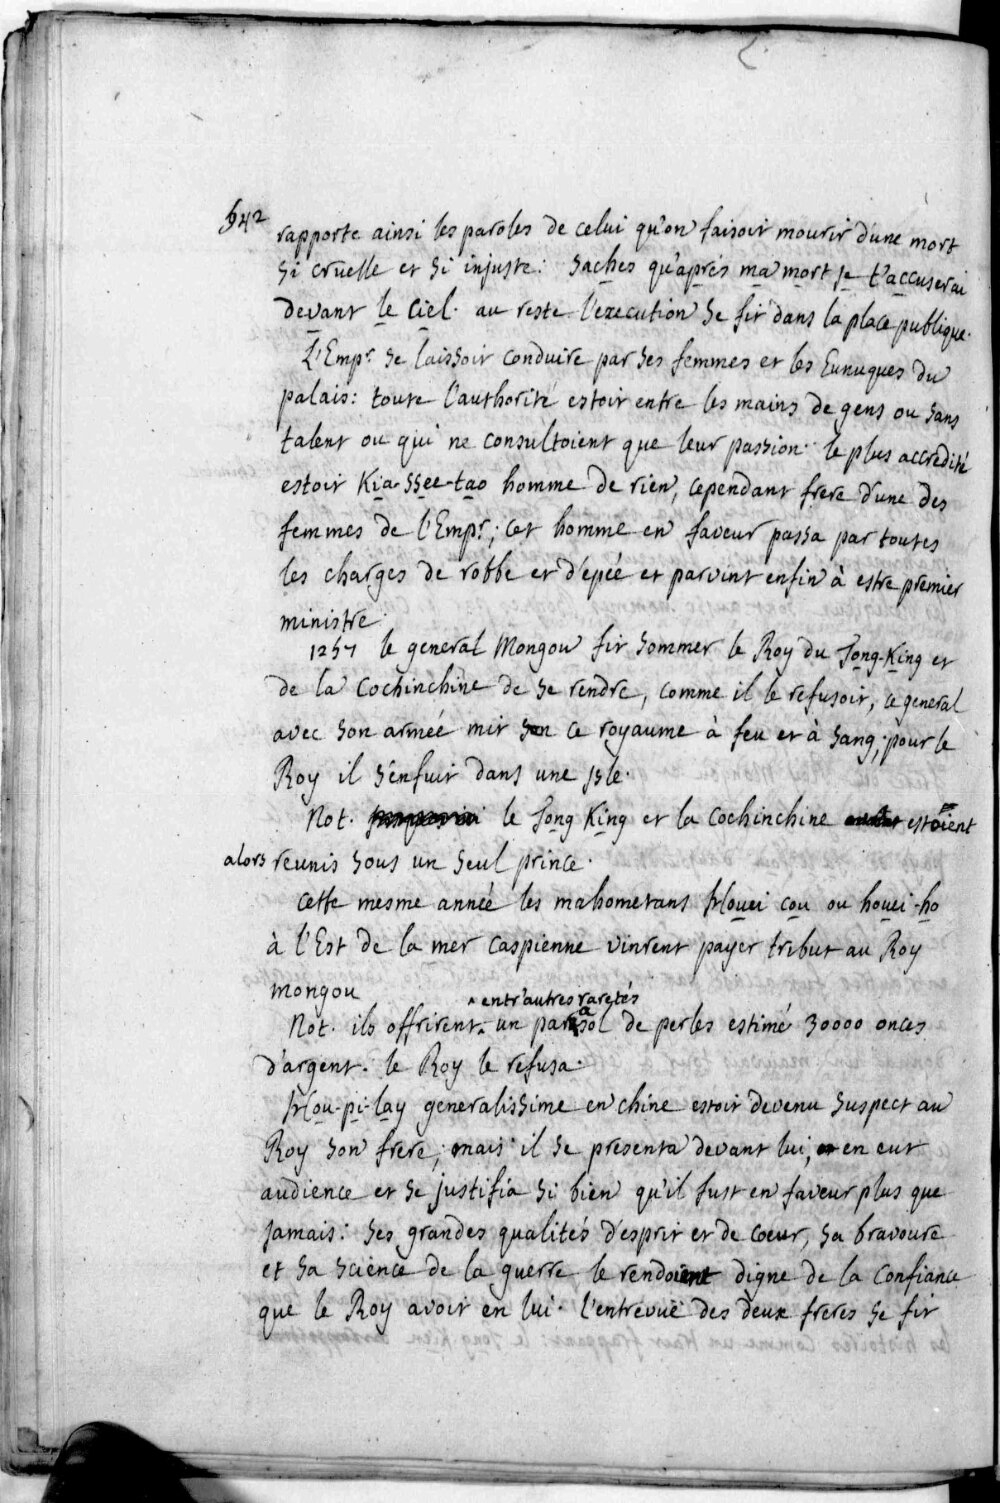 542
rapporte ainsi les paroles de celui qu'on faisoit mourir d'une mort
si cruelle et si injuste: saches qu'aprés ma mort je t'accuserai
devant le Ciel. au reste l'execution se fit dans la place publique.
L'Empr. se laissoit conduire par ses femmes et les Eunuques du
palais: toute l'authorité estoit entre les mains de gens ou sans
talent ou qui ne consultoient que leur passion. le plus accredité
estoit Kia-ssee-tao homme de rien, cependant frere d'une des
femmes de l'Empr.; cet homme en faveur passa par toutes
les charges de robbe et d'epée et parvint enfin à estre premier
ministre.
1257 le general Mongou fit sommer le Roy du Tong-King et
de la Cochinchine de se rendre, comme il le refusoit, ce general
avec son armée mit ce royaume à feu et à sang; pour le
Roy il s'enfuit dans une isle.
Not. le Tong King et la Cochinchine estoient
alors reunis sous un seul prince.
Cette mesme année les mahometans Houei cou ou houei-ho
à l'Est de la mer caspienne vinrent payer tribut au Roy
mongou
^ entr'autres raretés
Not. ils offrirent ^ un parasol de perles estimé 30000 onces
d'argent. le Roy le refusa.
Hou-pi-lay generalissime en chine estoit devenu suspect au
Roy son frere; mais il se presenta devant lui, en eut
audience et se justifia si bien qu'il fust en faveur plus que
jamais: ses grandes qualités d'esprit et de coeur, sa bravoure
et sa science de la guerre le rendoient digne de la confiance
que le Roy avoit en lui. l'entrevuë des deux freres se fit